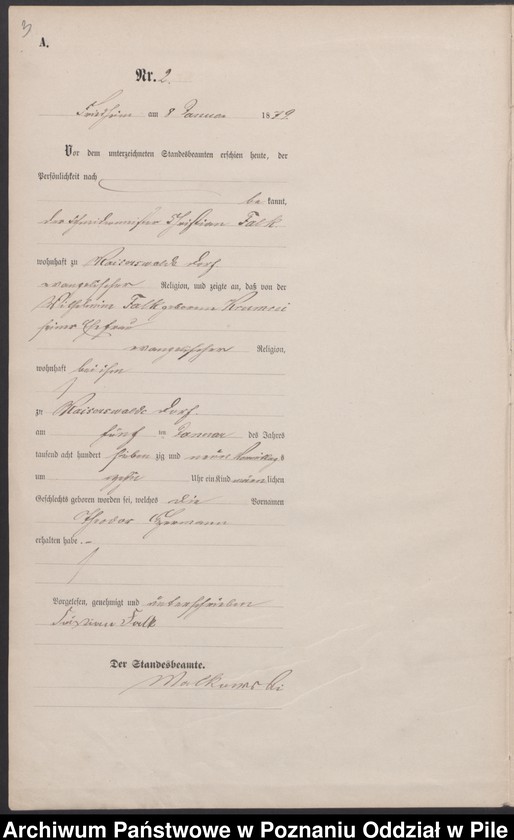 3
A.
Nr. 2.
Friedheim am 8 Januar 1879
Vor dem unterzeichneten Standesbeamten erschien heute, der
Persönlichkeit nach
be kannt,
der Schneidermeister Christian Falk
wohnhaft zu Kaiserswalde Dorf
evangelischer Religion, und zeigte an, daß von der
Wilhelmine Falk geborene
seiner Ehefrau
evangelischer Religion,
wohnhaft bei ihm
zu Kaiserswalde Dorf
am fünf ten Januar des Jahres
tausend acht hundert sieben zig und neun Vormittags
um Uhr ein Kind männ lichen
Geschlechts geboren worden sei, welches die Vornamen
Theodor Hermann
erhalten habe. –
Vorgelesen, genehmigt und unterschrieben
Falk
Der Standesbeamte.
Malkowski
Archiwum Państwowe w Poznaniu Oddział w Pile